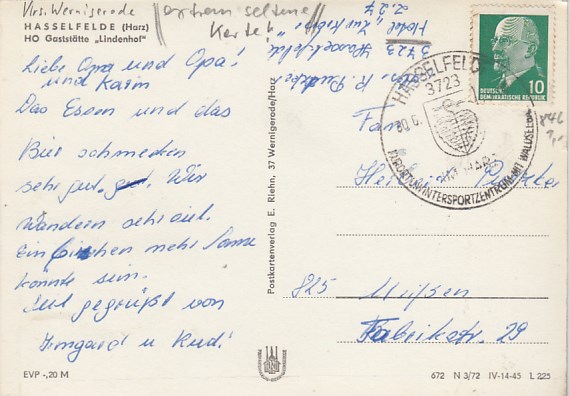 Krs. Wernigerode
extrem seltene
Karte!
HASSELFELDE (Harz)
HO Gaststätte „Lindenhof"
Liebe Oma und Opa!
und Karin
Das Essen und das
Bier schmecken
sehr gut. Wir
Wandern sehr viel.
Ein bischen mehr Sonne
könnte sein.
Gut gegrüßt von
Irmgard u Rudi
EVP -,20 M
Postkartenverlag E. Riehn, 37 Wernigerode/Harz
R.
3723 Hasselfelde
Hotel "Zur Krone"
Z. 27
HASSELFELDE
3723
KURORT U. WINTERSPORTZENTRUM MIT WALDSEEBAD
10
DEUTSCHE
DEMOKRATISCHE REPUBLIK
846
Fam.
825 Meißen
Fabrikstr. 29
672 N 3/72 IV-14-45 L 225